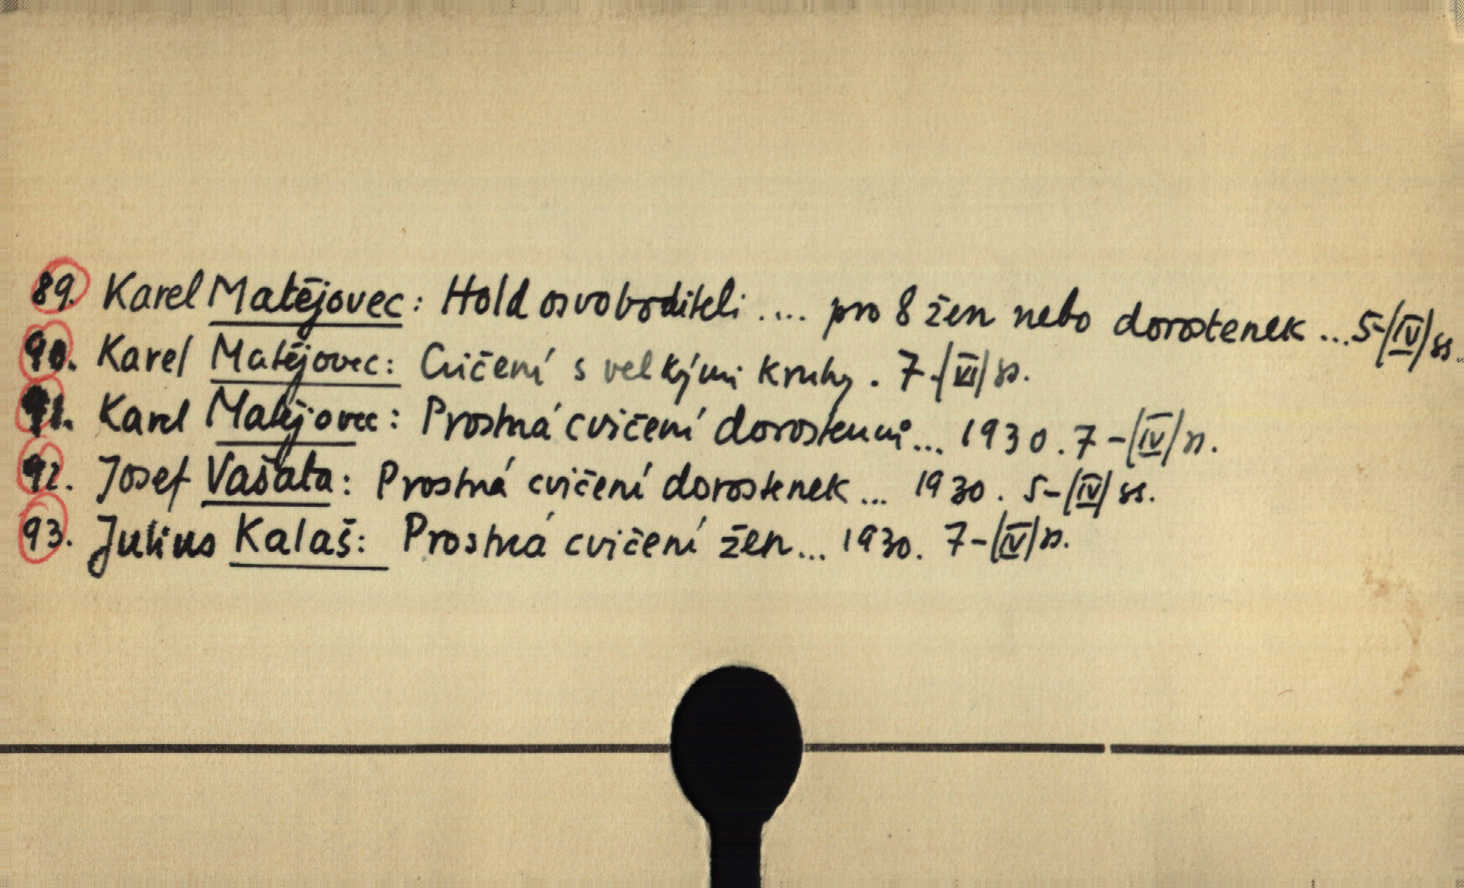 89. Karel Matějovec: Hold osvoboditeli .... pro 8 žen nebo dorostenek ... 5-(IV) ss.
90. Karel Matějovec: Cvičení s velkými kruhy. 7-(VI) s.
91. Karel Matějovec: Prostná cvičení dorostenců... 1930. 7-(IV) s.
92. Josef Vašata: Prostná cvičení dorostenek... 1930. 5-(IV) ss.
93. Julius Kalaš: Prostná cvičení žen... 1930. 7-(IV) s.